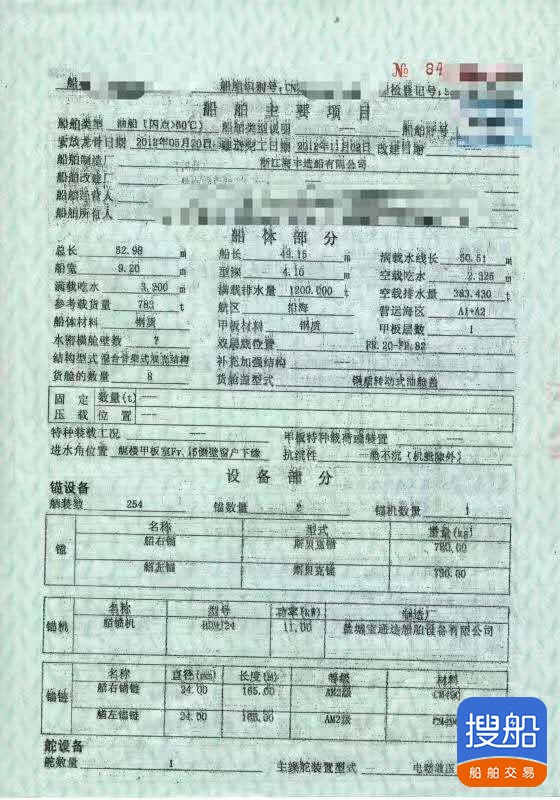 № 84
船舶识别号:CN
船检登记号:
船舶主要项目
船舶类型 油船（闪点>60℃） 船舶类型说明 —— 船舶呼号
安放龙骨日期 2012年05月20日 建造完工日期 2012年11月02日 改建日期
船舶制造厂 浙江海丰造船有限公司
船舶改建厂
船舶经营人
船舶所有人
船体部分
总长 52.98 m 船长 49.15 m 满载水线长 50.51 m
船宽 9.20 m 型深 4.10 m 空载吃水 2.325 m
满载吃水 3.200 m 满载排水量 1200.000 t 空载排水量 383.430 t
参考载货量 783 t 航区 沿海 营运海区 A1+A2
船体材料 钢质 甲板材料 钢质 甲板层数 1
水密横舱壁数 7 双层底位置 FR.20-FR.82
结构型式 混合骨架式双壳结构 补充加强结构 ——
货舱的数量 8 货舱盖型式 钢质转动式油舱盖
固定压载 数量(t) ——
位置 ——
特种装载工况 —— 甲板特种载荷需装置 ——
进水角位置 艉楼甲板室Fr.15侧壁窗户下缘 抗沉性 一舱不沉（机舱除外）
设备部分
锚设备
舾装数 254 锚数量 2 锚机数量 1
锚 名称 型式 重量(kg)
船右锚 斯贝克锚 780.00
船左锚 斯贝克锚 790.00
锚机 名称 型号 功率(kW) 制造厂
船锚机 11.00 盐城宝通达船舶设备有限公司
锚链 名称 直径(mm) 长度(m) 等级 材料
船右锚链 24.00 165.00 AM2级 CM490
船左锚链 24.00 165.00 AM2级 CM490
舵设备
舵数量 1 主操舵装置型式 电动液压
搜船
船舶交易